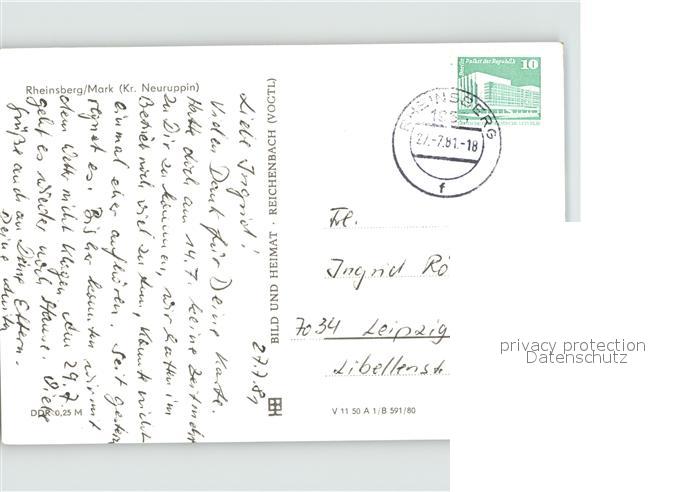 Rheinsberg/Mark (Kr. Neuruppin)
27.7.81
Liebe Ingrid!
Vielen Dank für Deine Karte.
Hatte dich am 14.7. keine Zeit mehr
zu Dir zu kommen, wir hatten im
Betrieb noch viel zu tun, konnte nicht
einmal eher aufhören. Seit gestern
regnet es. Bisher konnten wir mit
dem Wetter nicht klagen. Am 29.7.
geht es wieder nach Hause. Viele
Grüße auch an Deine Eltern.
Deine
DDR 0,25 M
BILD UND HEIMAT · REICHENBACH (VOGTL)
V 11 50 A 1/B 591/80
Berlin Palast der Republik
10
RHEINSBERG
27.-7.81.-18
f
Frl.
Ingrid Rö
7034 Leipzig
Libellenst
privacy protection
Datenschutz